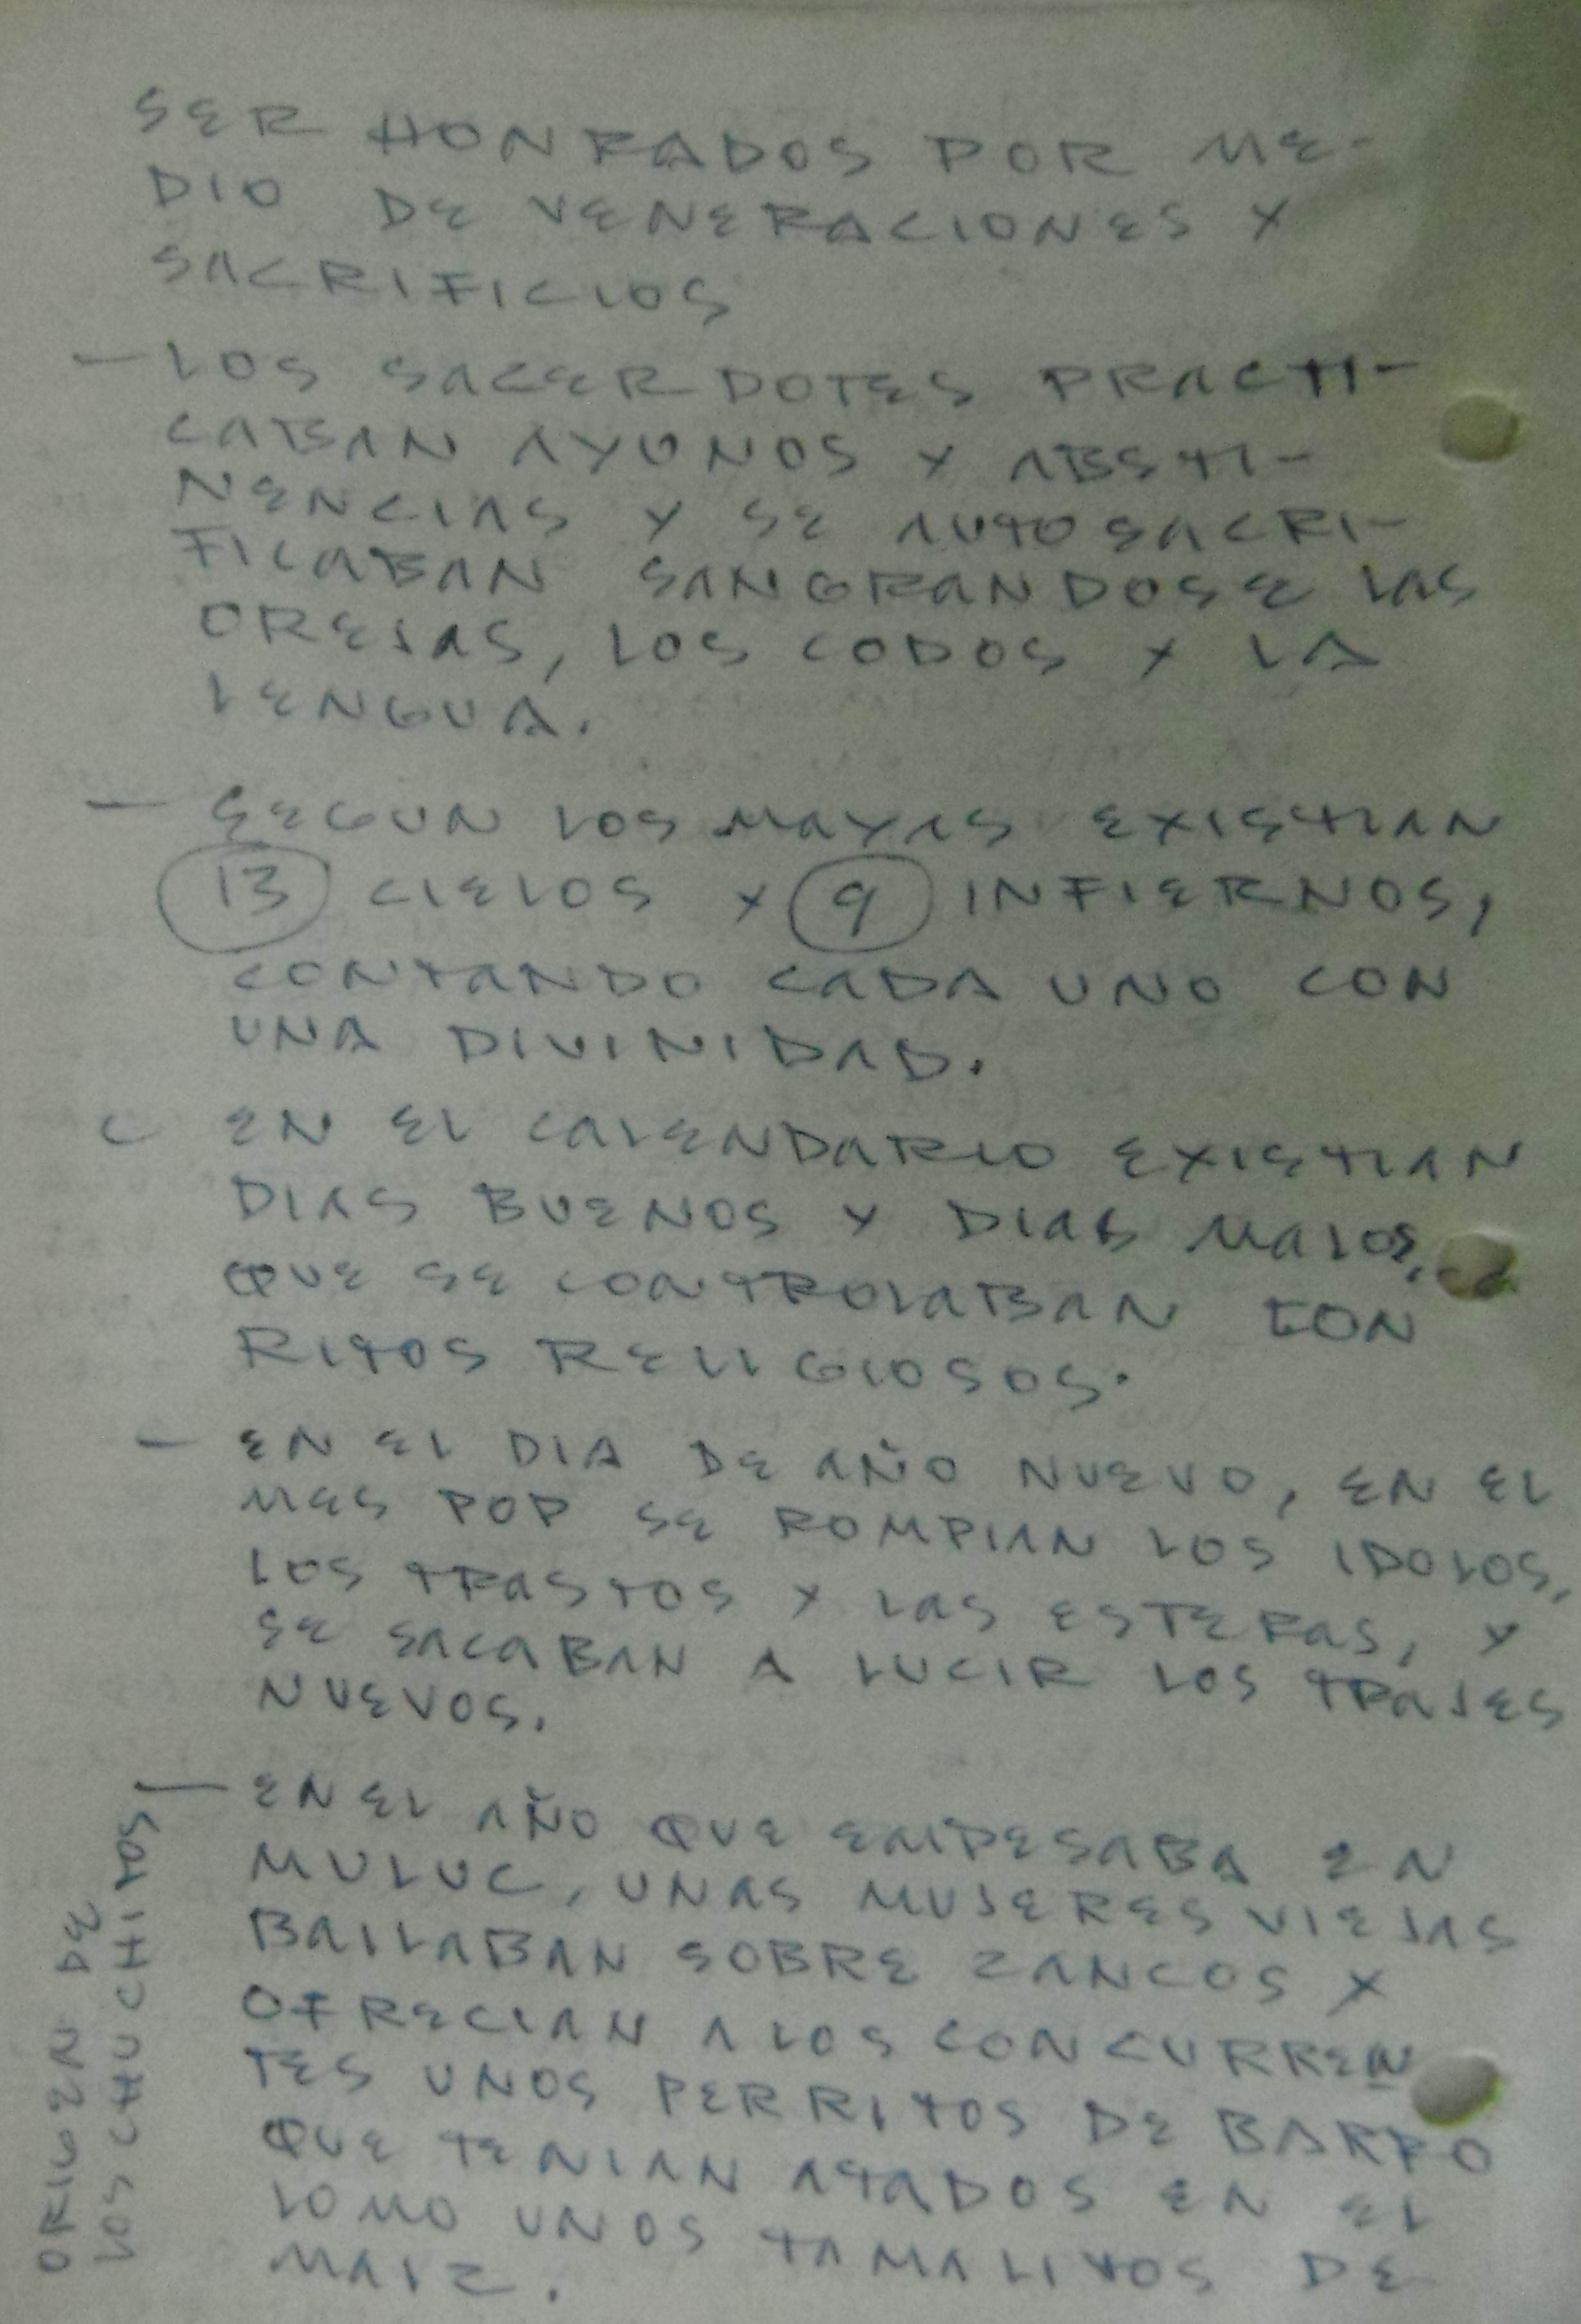 SER HONRADOS POR ME-
DIO DE VENERACIONES Y
SACRIFICIOS
— LOS SACERDOTES PRACTI-
CABAN AYUNOS Y ABSTI-
NENCIAS Y SE AUTOSACRI-
FICABAN SANGRANDOSE LAS
OREJAS, LOS CODOS Y LA
LENGUA.
— SEGUN LOS MAYAS EXISTIAN
13 CIELOS Y 9 INFIERNOS,
CONTANDO CADA UNO CON
UNA DIVINIDAD.
EN EL CALENDARIO EXISTIAN
DIAS BUENOS Y DIAS MALOS,
QUE SE CONTROLABAN CON
RITOS RELIGIOSOS.
— EN EL DIA DE AÑO NUEVO, EN EL
MES POP SE ROMPIAN LOS IDOLOS,
LOS TRASTOS Y LAS ESTERAS, Y
SE SACABAN A LUCIR LOS TRAJES
NUEVOS.
— EN EL AÑO QUE EMPESABA EN
MULUC, UNAS MUJERES VIEJAS
BAILABAN SOBRE ZANCOS Y
OFRECIAN A LOS CONCURREN
TES UNOS PERRITOS DE BARRO
QUE TENIAN ATADOS EN EL
LOMO UNOS TAMALITOS DE
MAIZ.
ORIGEN DE
LOS CHUCHITOS